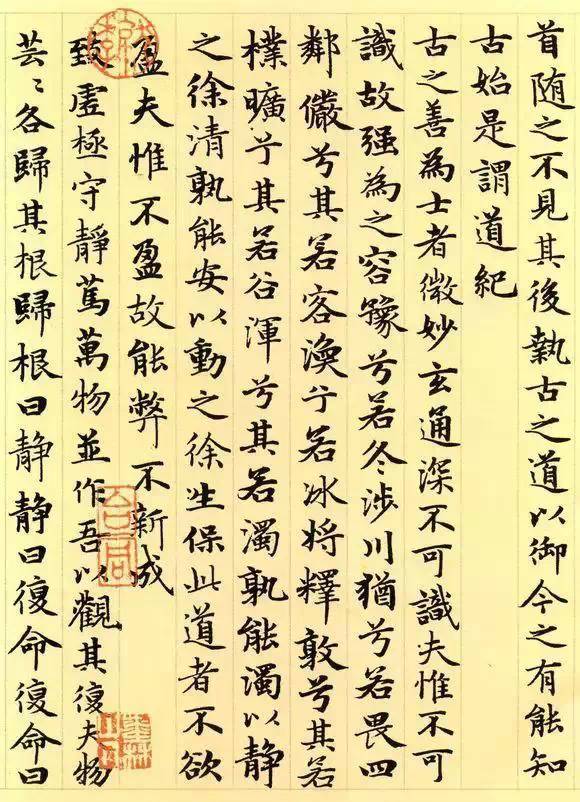 首随之不見其後執古之道以御今之有能知
古始是謂道紀
古之善為士者微妙玄通深不可識夫惟不可
識故强為之容豫兮若冬涉川猶兮若畏四
鄰儼兮其若客渙兮若冰将釋敦兮其若
樸曠兮其若谷渾兮其若濁孰能濁以静
之徐清孰能安以動之徐生保此道者不欲
盈夫惟不盈故能弊不新成
致虛極守静篤萬物並作吾以觀其復夫物
芸〻各歸其根歸根曰静静曰復命復命曰